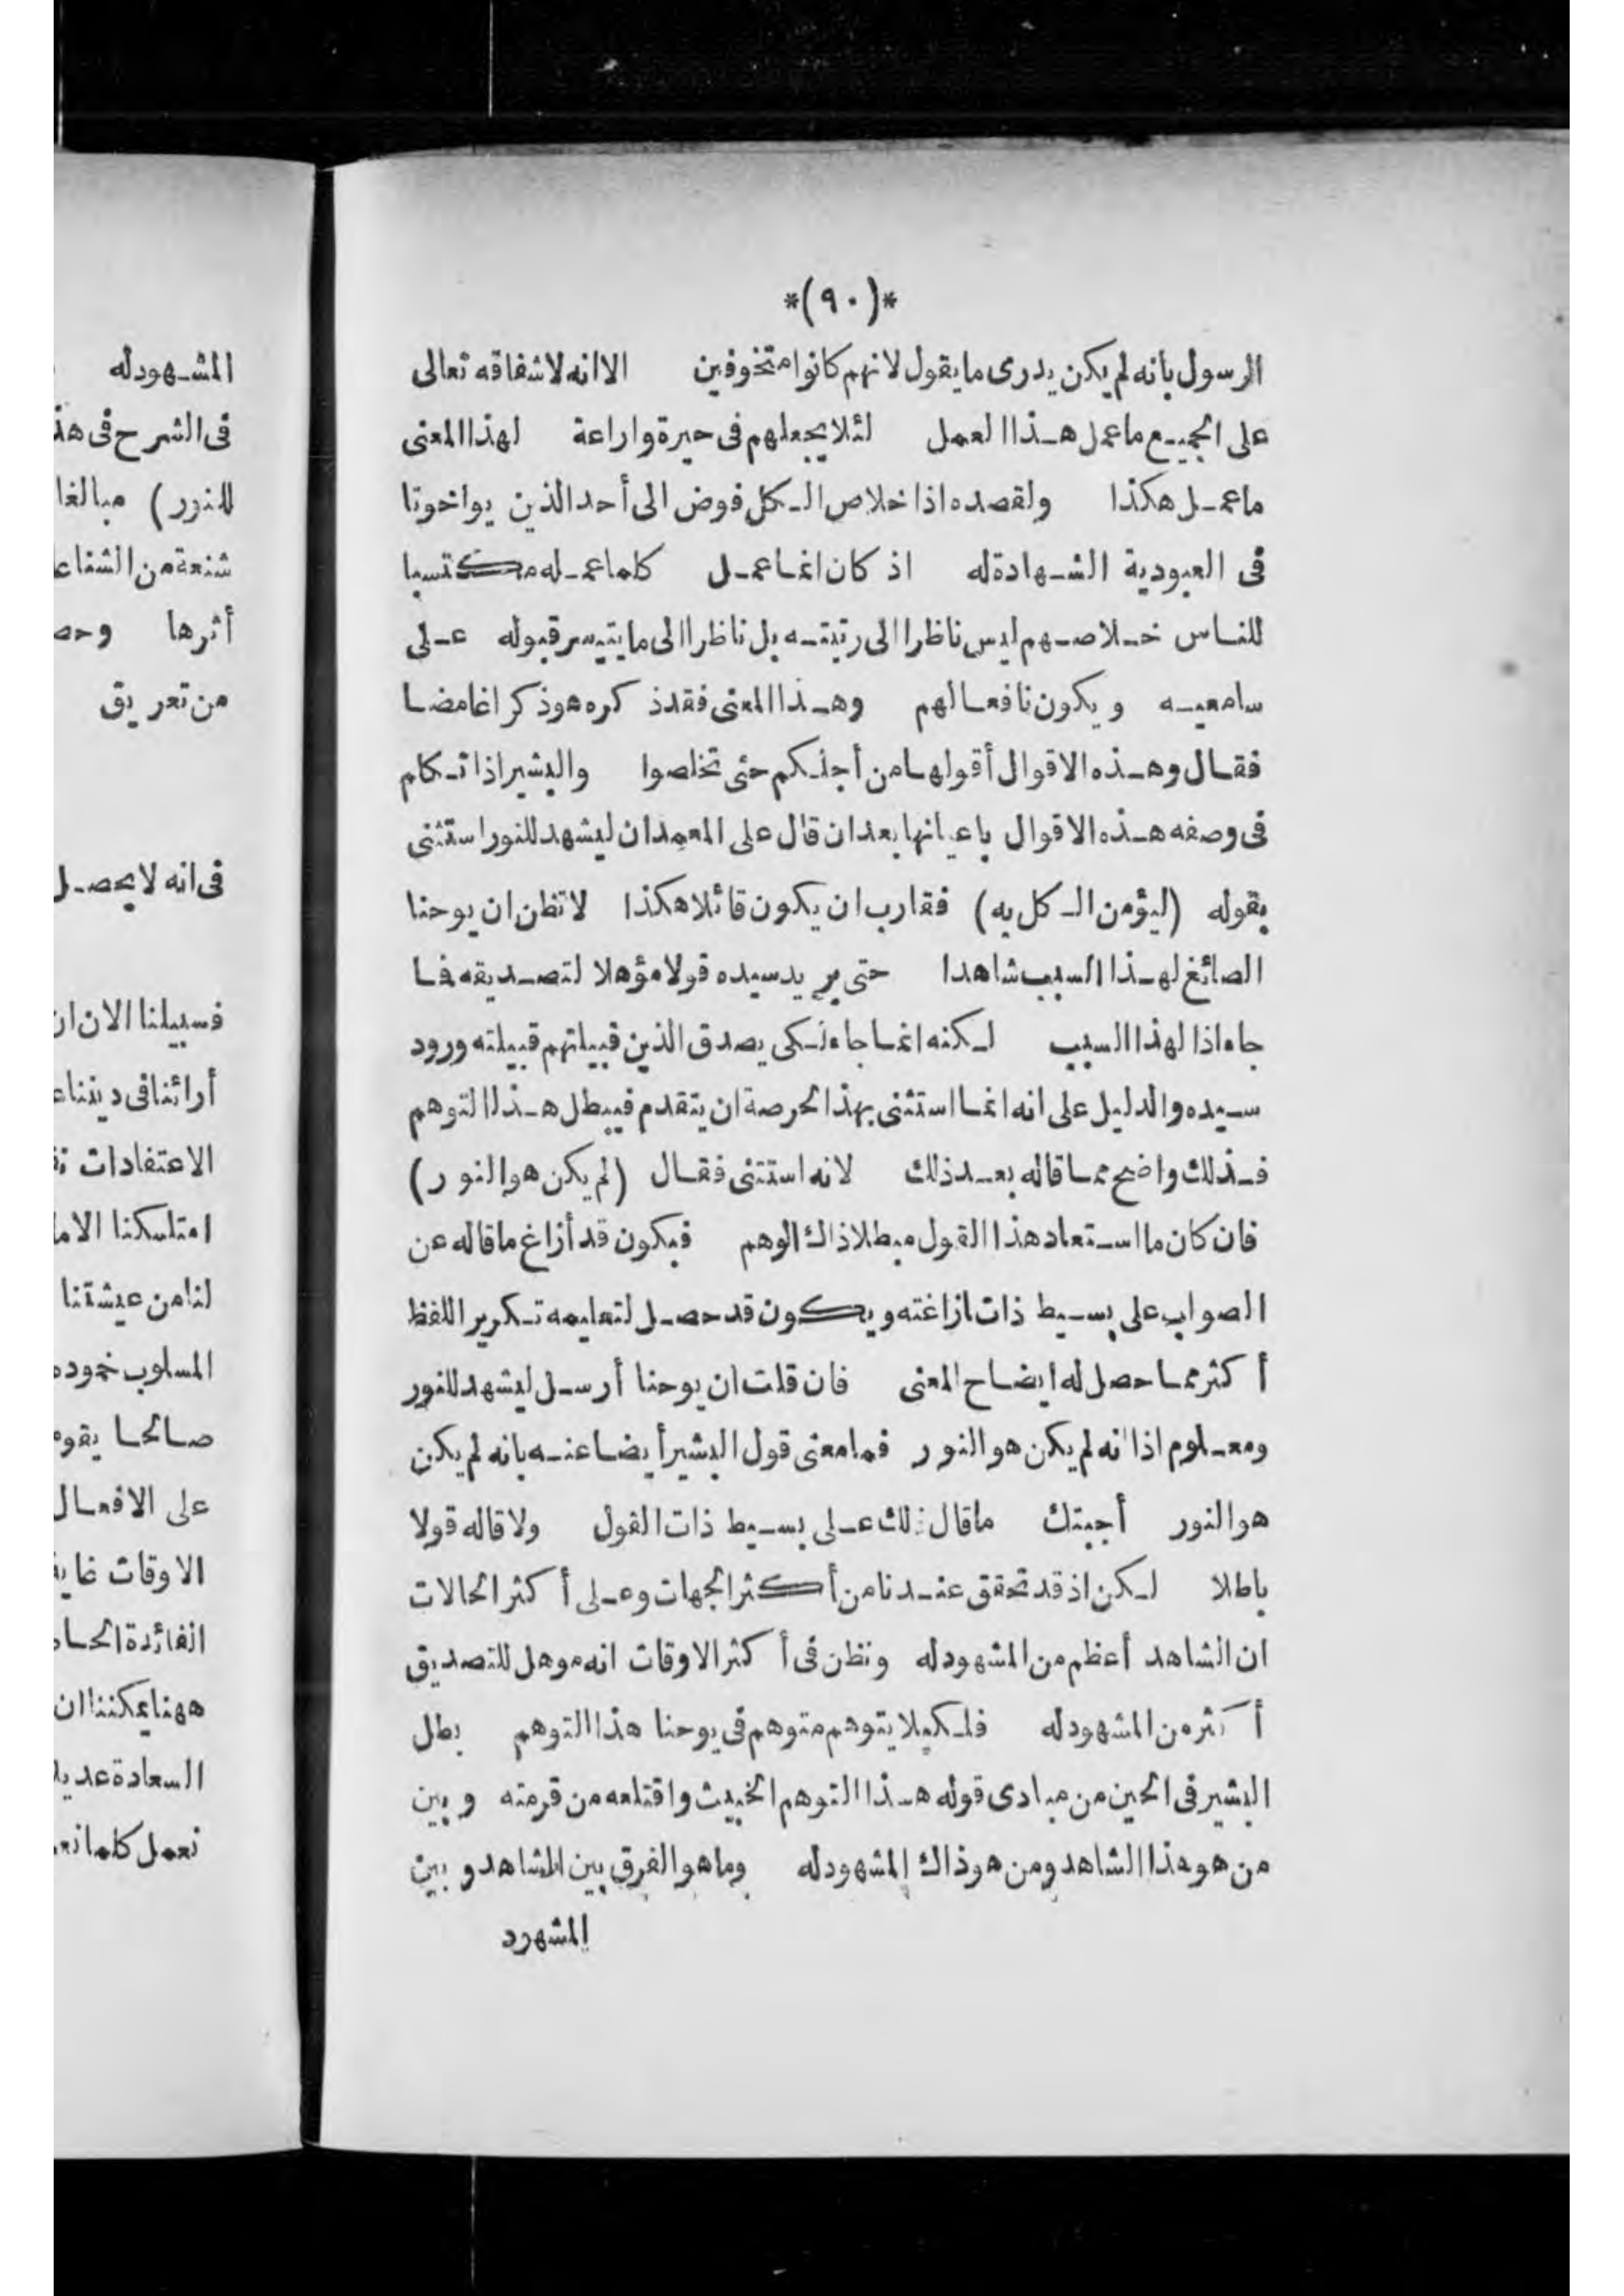 *(٩٠)*
الرسول بأنه لم يكن يدرى ما يقول لانهم كانوا متخوفين الا انه لاشفاقه تعالى
على الجميع ما عمل هذا العمل لئلا يجعلهم فى حيرة واراعة لهذا المعنى
ما عمل هكذا ولقصده اذا خلاص الكل فوض الى أحد الذين يواخوتا
فى العبودية الشهادة له اذ كان انما عمل كلما عمله مكتسبا
للناس خلاصهم ليس ناظرا الى رتبته بل ناظرا الى ما يتيسر قبوله على
سامعيه ويكون نافعا لهم وهذا المعنى فقد ذكره هو ذكرا غامضا
فقال وهذه الاقوال أقولها من أجلكم حتى تخلصوا والبشير اذا تكام
فى وصفه هذه الاقوال باعيانها بعد ان قال على المعمدان ليشهد للنور استثنى
بقوله (ليؤمن الكل به) فقارب ان يكون قائلا هكذا لا تظن ان يوحنا
الصائغ لهذا السبب شاهدا حتى يريد سيده قولا مؤهلا لتصديقه فا
جاء اذا لهذا السبب لكنه انما جاء لكى يصدق الذين قبيلتهم قبيلته ورود
سيده والدليل على انه انما استثنى بهذا لحرصه ان يتقدم فيبطل هذا التوهم
فذلك واضح مما قاله بعد ذلك لانه استتنى فقال (لم يكن هو النور)
فان كان ما استعاد هذا القول مبطلا ذاك الوهم فيكون قد أزاغ ما قاله عن
الصواب على بسيط ذات ازاغته ويكون قد حصل لتعليمه تكرير اللفظ
أكثر مما حصل له ايضاح المعنى فان قلت ان يوحنا أرسل ليشهد للنور
ومعلوم اذا انه لم يكن هو النور فما معنى قول البشير أيضا عنه بانه لم يكن
هو النور أجبتك ما قال ذلك على بسيط ذات القول ولا قاله قولا
باطلا لكن اذ قد تحقق عندنا من أكثر الجهات وعلى أكثر الحالات
ان الشاهد أعظم من المشهود له ونظن فى أكثر الاوقات انه موهل للتصديق
أكثر من المشهود له فلكيلا يتوهم متوهم فى يوحنا هذا التوهم بطل
البشير فى الحين من مبادى قوله هذا التوهم الخبيث واقتلعه من قرمته وبين
من هو هذا الشاهد ومن هو ذاك المشهود له وما هو الفرق بين الشاهد وبين
المشهود
المشهود له
فى الشرح فى هذ
للنور) مبالغا
شنعة من الشنا
أثرها
من تعريق
فى انه لا يحصل
فسبيلنا الان ان
أرائنا فى ديننا
الاعتقادات
امتلكنا الاما
لنا من عيشتنا
المسلوب خموده
صالحا يقوم
على الافعال
الاوقات غاية
الفائدة
ههنا يمكننا ان
السعادة
نعمل كلما